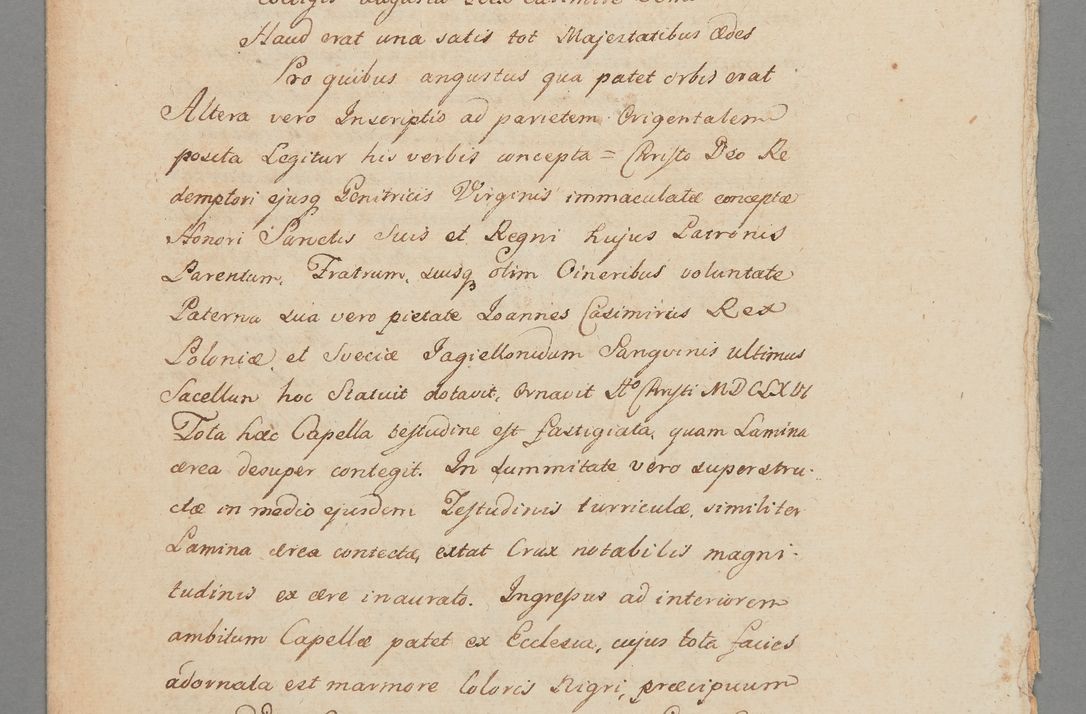 Haud erat una satis tot Majestatibus ædes
Pro quibus angustus qua patet orbis erat
Altera vero Inscriptio ad parietem Origentalem
posita Legitur his verbis concepta = Christo Deo Re
demptori ejusq Genitricis Virginis immaculatæ conceptæ
Honori Sanctis suis et Regni hujus Patronis
Parentum, Fratrum, suisq olim Cineribus voluntate
Paterna sua vero pietate Joannes Casimirus Rex
Poloniæ et Sveciæ Jagiellonidum Sanguinis ultimus
Sacellum hoc Statuit dotavit, Ornavit Ao Christi MDCLXVI
Tota hæc Capella testudine est fastigiata, quam Lamina
ærea desuper contegit. In summitate vero superstru-
ctæ in medio ejusdem Testudinis turriculæ, similiter
Lamina ærea contectæ, extat Crux notabilis magni-
tudinis ex ære inaurato. Ingressus ad interiorem
ambitum Capellæ patet ex Ecclesia, cujus tota facies
adornata est marmore Coloris Nigri, præcipuum